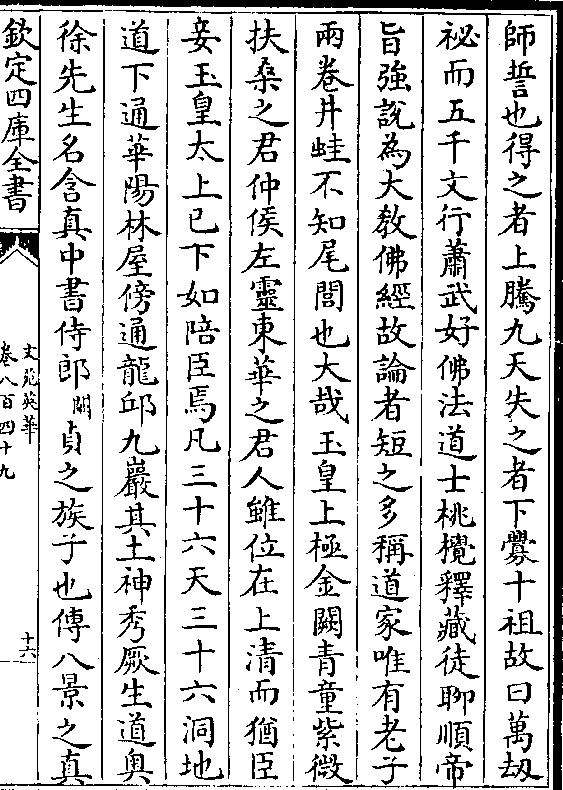 師誓也得之者上騰九天失之者下釁十祖故曰萬刼
祕而五千文行蕭武好佛法道士桃欖釋藏徒聊順帝
旨強說為大教佛經故論者短之多稱道家唯有老子
兩卷井蛙不知尾閭也大哉玉皇上極金闕青童紫微
扶桑之君仲侯左靈東華之君人雖位在上清而猶臣
妾玉皇太上已下如陪臣焉凡三十六天三十六洞地
道下通華陽林屋傍通龍邱九巖其土神秀厥生道奥
徐先生名含真中書侍郎闕貞之族子也傳八景之真
欽定四庫全書
文苑英華
卷八百四十九
十六